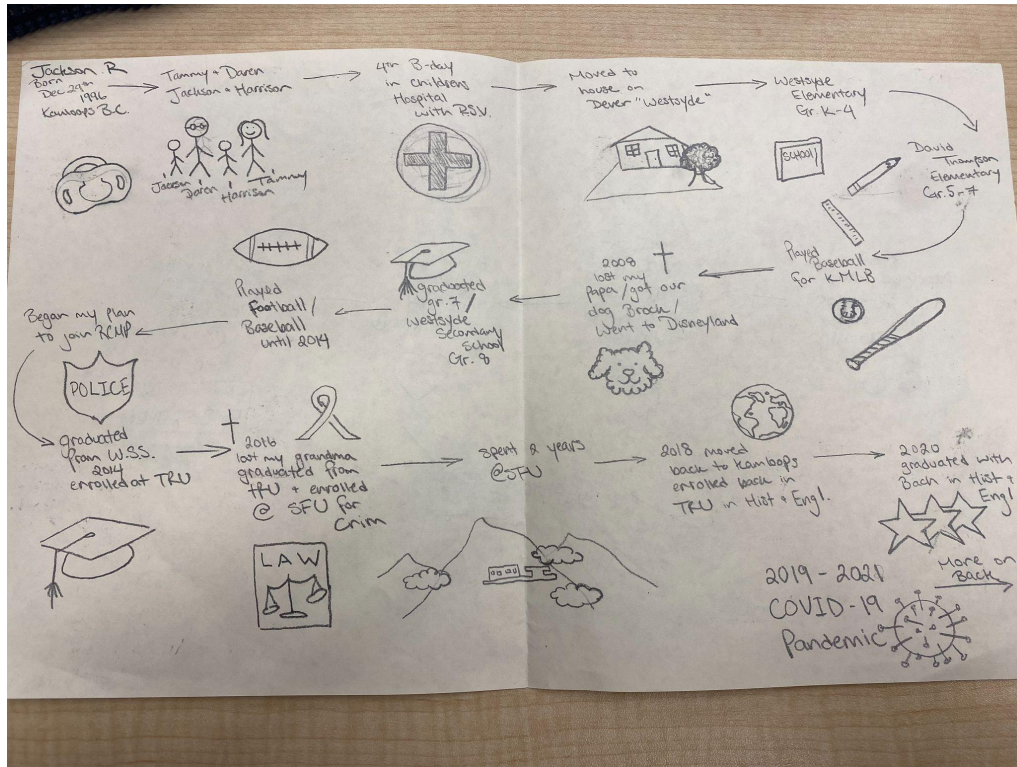 Jackson R
Born
Dec 29th
1996
Kamloops B.C.
Tammy + Daren
Jackson + Harrison
Jackson
Daren
Harrison
Tammy
4th B-day
in childrens
Hospital
with RSV.
Moved to
house on
Dever "Westsyde"
Westsyde
Elementary
Gr. K-4
SCHOOL
David
Thompson
Elementary
Gr. 5-7
Played
Baseball
for KMLB
2008
lost my
Papa/got our
dog Brock/
Went to Disneyland
graduated
gr. 7/
Westsyde
Secondary
School
Gr. 8
Played
Football/
Baseball
until 2014
Began my plan
to join RCMP
POLICE
graduated
from W.S.S.
2014
enrolled at TRU
2016
lost my grandma
graduated from
TRU + enrolled
@ SFU for
Crim
LAW
spent 2 years
@SFU
2018 moved
back to Kamloops
enrolled back in
TRU in Hist + Engl.
2020
graduated with
Bach in Hist +
Engl
More on
Back
2019-2021
COVID-19
Pandemic